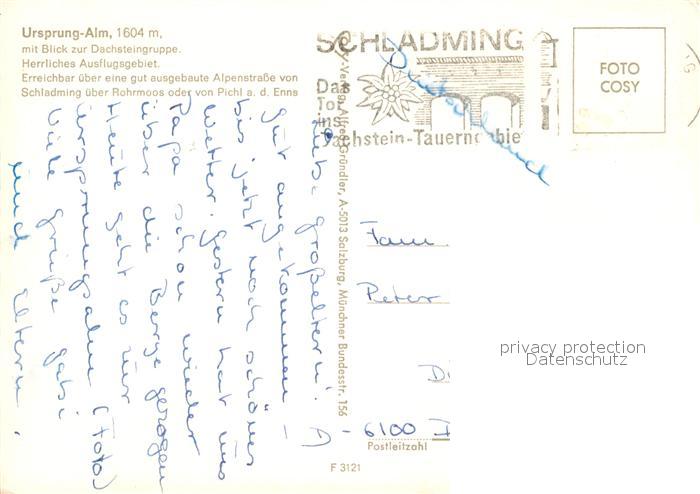 Ursprung-Alm, 1604 m,
mit Blick zur Dachsteingruppe.
Herrliches Ausflugsgebiet.
Erreichbar über eine gut ausgebaute Alpenstraße von
Schladming über Rohrmoos oder von Pichl a. d. Enns
Liebe Großeltern!
Gut angekommen –
bis jetzt noch schönes
Wetter. Gestern hat uns
Papa schon wieder
über die Berge gezogen
Heute geht es zur
Ursprungalm (Foto)
Viele Grüße Gabi
und Eltern.
Verlag Alfred Gründler, A-5013 Salzburg, Münchner Bundesstr. 156
SCHLADMING
Das
Tor
ins
Dachstein-Tauerngebie
FOTO
COSY
Fam.
Peter
6100
Postleitzahl
F 3121
privacy protection
Datenschutz